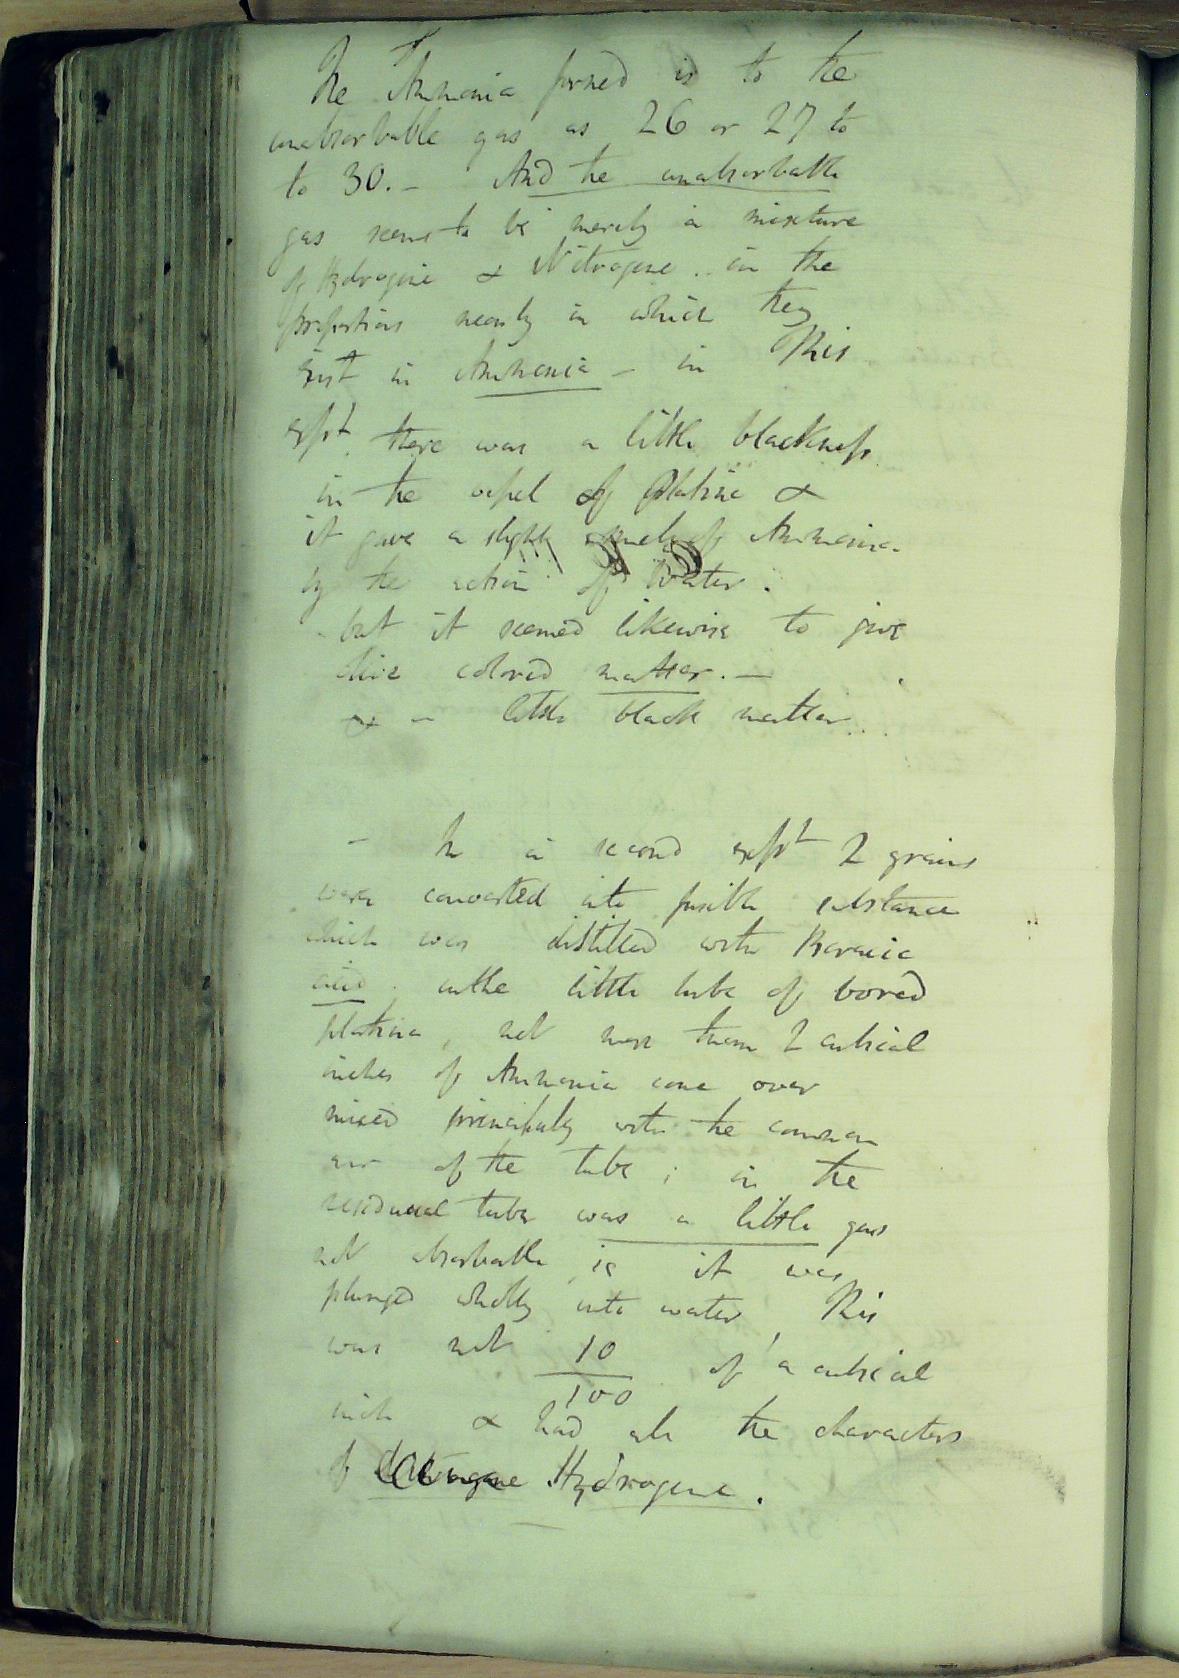 The Ammonia formed is to the
unabsorbable gas as 26 or 27 to
to 30. - And the unabsorbable
gas seems to be merely a mixture
of Hydrogene & Nitrogene .. in the
proportions nearly in which they
exist in Ammonia - in This
expt. there was a little blackness
in the vessel of Platina &
it gave a slight smell of Ammonia
by the action of Water.
- but it seemed likewise to give
olive colored matter. -
& - little black matter
- In a second expt 2 grains
were converted into fusible substance
which was distilled with Boracic
acid. in the little tube of bored
platina, not more than 2 cubical
inches of Ammonia came over
mixed principally with the common
air of the tube; in the
residual tube was a little gas
not absorbable ie it was
plunged wholly into water This
was not 10/100 of a cubical
inch & had all the characters
of Hydrogene.